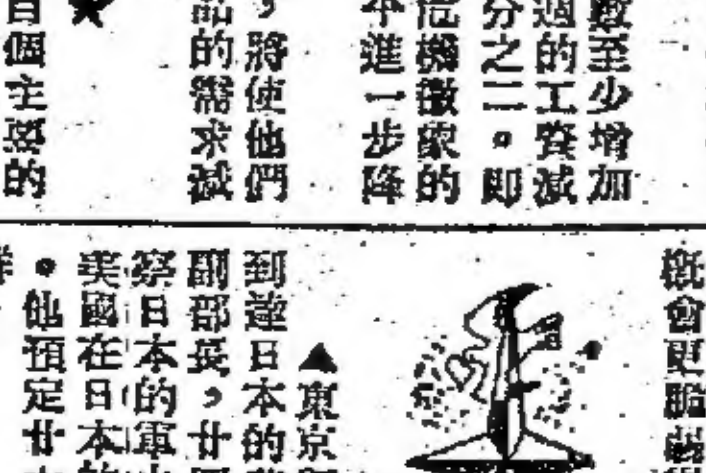 數至少增加
週的工資減
分之二。即
危機徵象的
本進一步降
，將使他們
品的需求減
百個主要的
概會更
▲東京
到達日本的
副部長，廿
察日本的軍
美國在日本的
。他預定廿